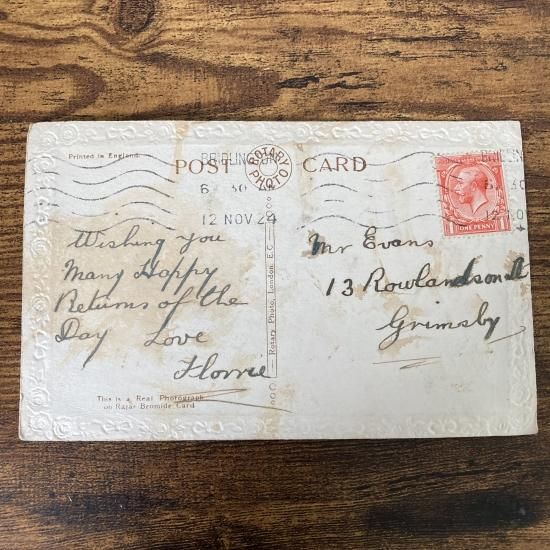 Printed in England.
POST CARD
ROTARY PHOTO
BRIDLINGTON
6 30
12 NOV 24
BRIDLIN
6 30
12 NO
ONE PENNY
Wishing you
Many Happy
Returns of the
Day Love
Florrie
Mr Evans
13 Rowlandson St
Grimsby
Rotary Photo, London, E.C.
This is a Real Photograph
on Rajar Bromide Card